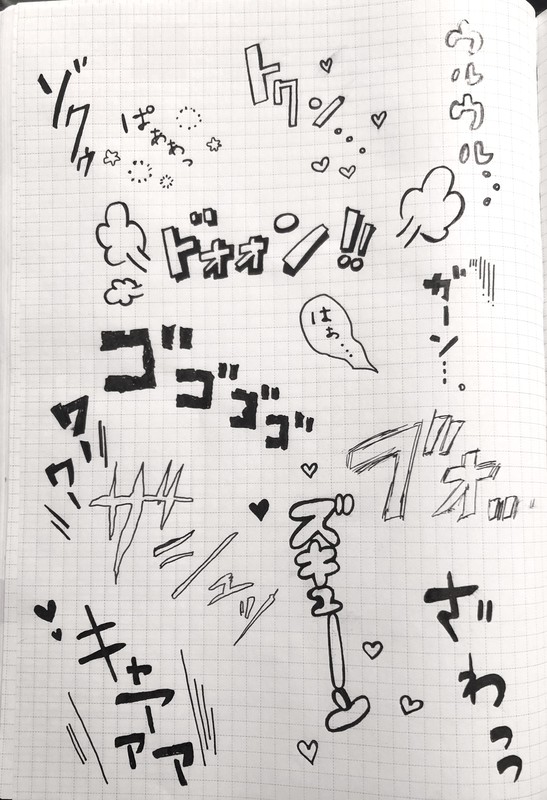 ゾクゥ
ぱぁぁっ
トクン…
ウルウル…
ドォォン!!
ガーン…
はぁ…
ゴゴゴゴ
ワーワー
ブォ…
ザシュッ
ズキューン
キャーアァア
ざわっ